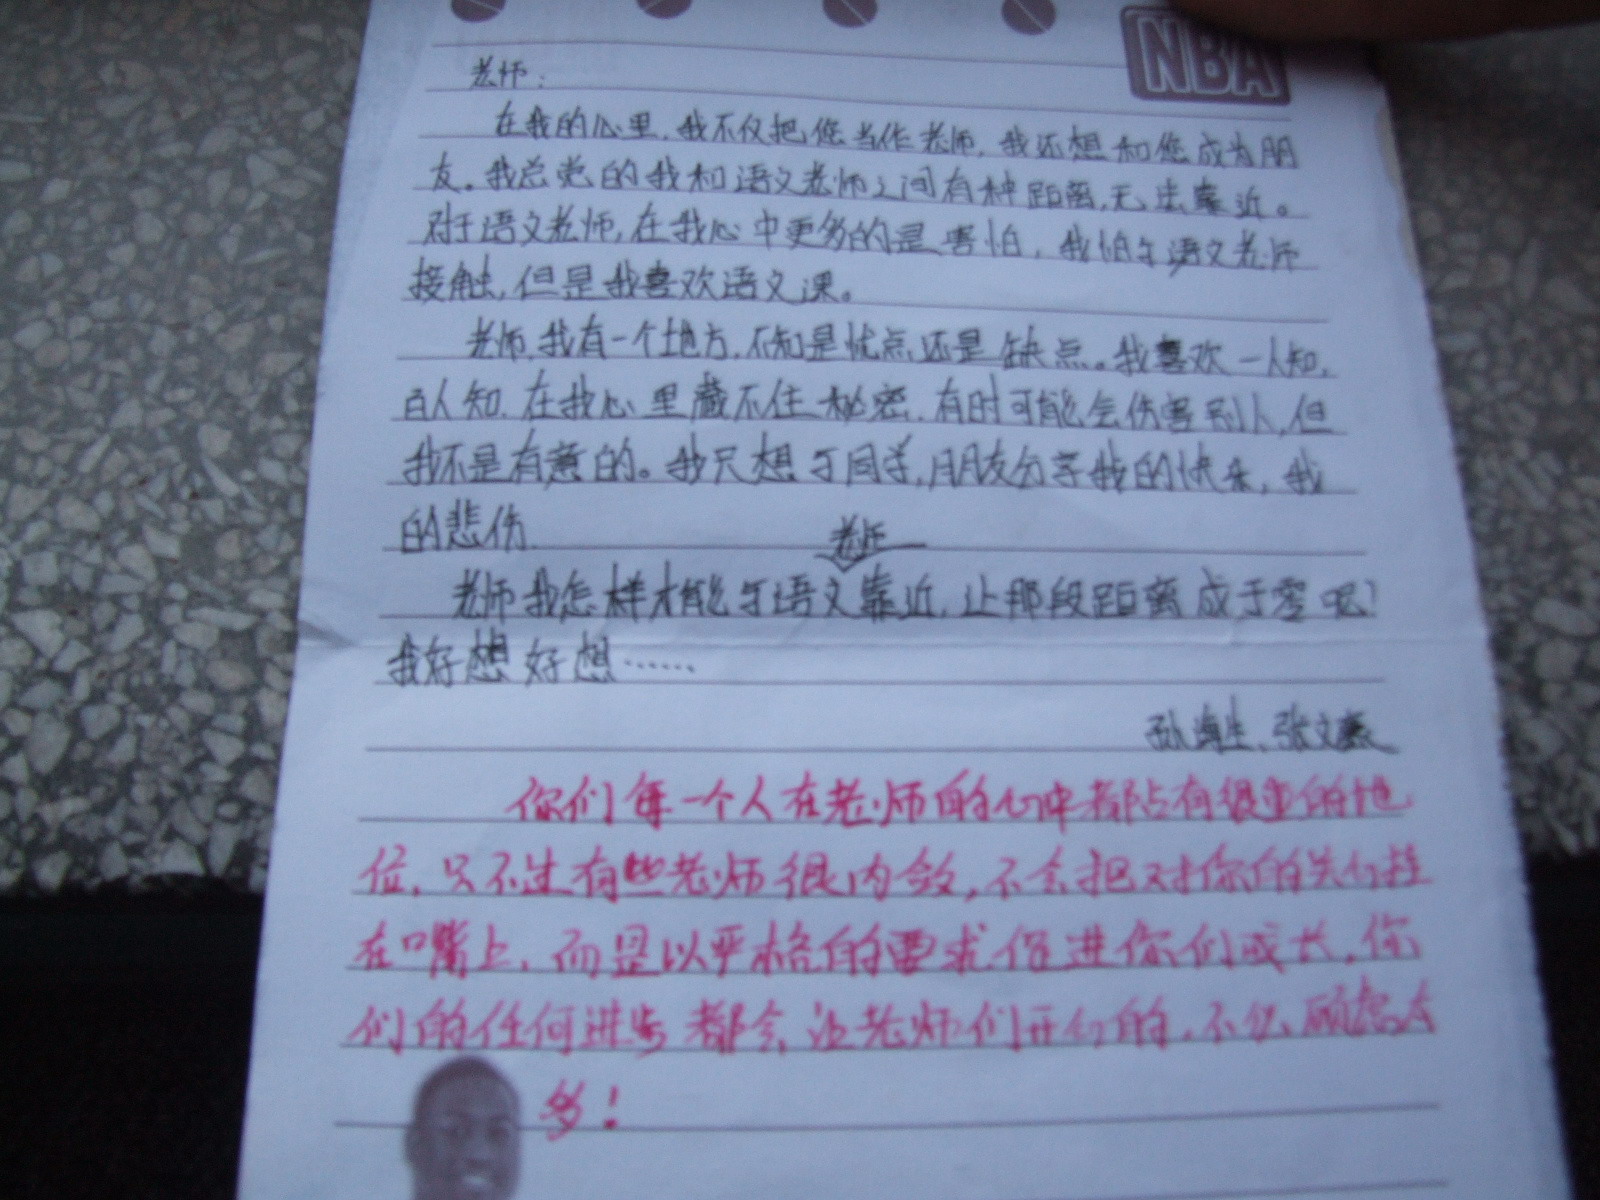 NBA
老师：
在我的心里，我不仅把您当作老师，我还想和您成为朋
友。我总觉的我和语文老师之间有种距离，无法靠近。
对于语文老师，在我心中更多的是害怕，我怕与语文老师
接触，但是我喜欢语文课。
老师，我有一个地方，不知是优点还是缺点。我喜欢一人知，
百人知，在我心里藏不住秘密，有时可能会伤害别人，但
我不是有意的。我只想与同学，朋友分享我的快乐，我
的悲伤
老师
老师我怎样才能与语文靠近，让那段距离成于零呢？
我好想好想……
孙海生、张文
你们每一个人在老师的心中都占有很重的地
位，只不过有些老师很内敛，不会把对你的关心挂
在嘴上，而是以严格的要求促进你们成长，你
们的任何进步都会让老师们开心的，不必顾虑太
多！